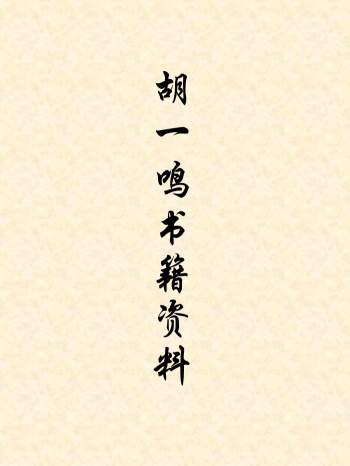 胡一鸣书籍资料